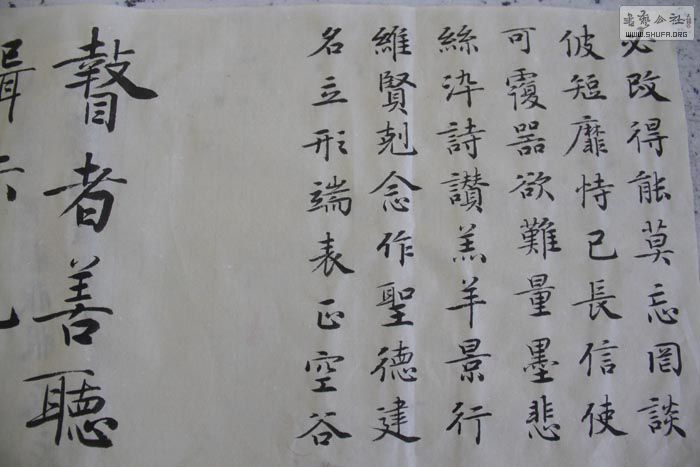 必改得能莫忘罔談
彼短靡恃己長信使
可覆器欲難量墨悲
絲染詩讃羔羊景行
維賢剋念作聖德建
名立形端表正空谷
瞽者善聽
书藝公社
WWW.SHUFA.ORG